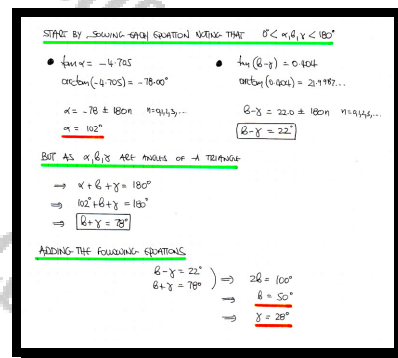 START BY SOLVING EACH EQUATION NOTING THAT 0° < α, β, γ < 180°
• tan α = −4.705
arctan(−4.705) = −78.00°
α = −78 ± 180n n=0,1,2,3,...
α = 102°
• tan(β−γ) = 0.404
arctan(0.404) = 21.9987...
β−γ = 22.0 ± 180n n=0,1,2,3,...
β−γ = 22°
BUT AS α, β, γ ARE ANGLES OF A TRIANGLE
⇒ α + β + γ = 180°
⇒ 102° + β + γ = 180°
⇒ β + γ = 78°
ADDING THE FOLLOWING EQUATIONS
β − γ = 22°
β + γ = 78° } ⇒ 2β = 100°
⇒ β = 50°
⇒ γ = 28°